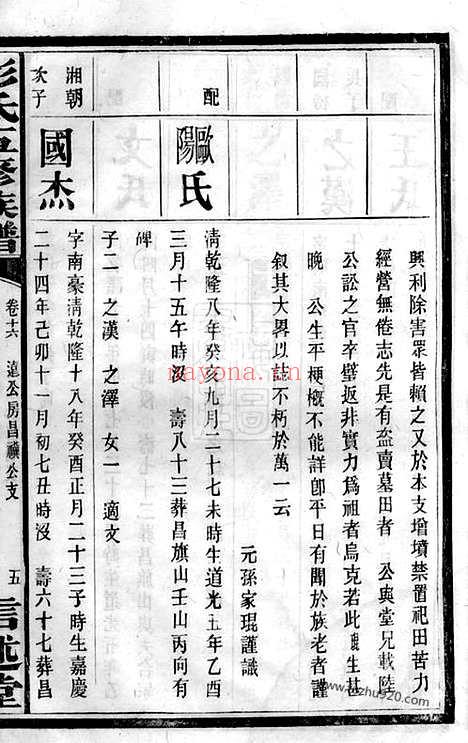 興利除害眾皆賴之又於本支增墳禁置祀田苦力
經營無倦志先是有盜賣墓田者　公與堂兄載陸
公訟之官卒璧返非實力為祖者烏克若此鹿生甚
晚　公生平梗概不能詳卽平日有聞於族老者謹
叙其大畧以誌不朽於萬一云
元孫家琨謹識
配
歐陽氏
清乾隆八年癸亥九月二十七未時生道光五年乙酉
三月十五午時沒　壽八十三葬昌旗山壬山丙向有
碑
子二　之漢　之澤　女一　適文
湘朝
次子
國杰
字南豪清乾隆十八年癸酉正月二十三子時生嘉慶
二十四年己卯十一月初七丑時沒　壽六十七葬昌
彭氏五修族譜
卷十六
蓮公房昌禩公支
五
信述堂
nayona.cn
www.zhu920.com